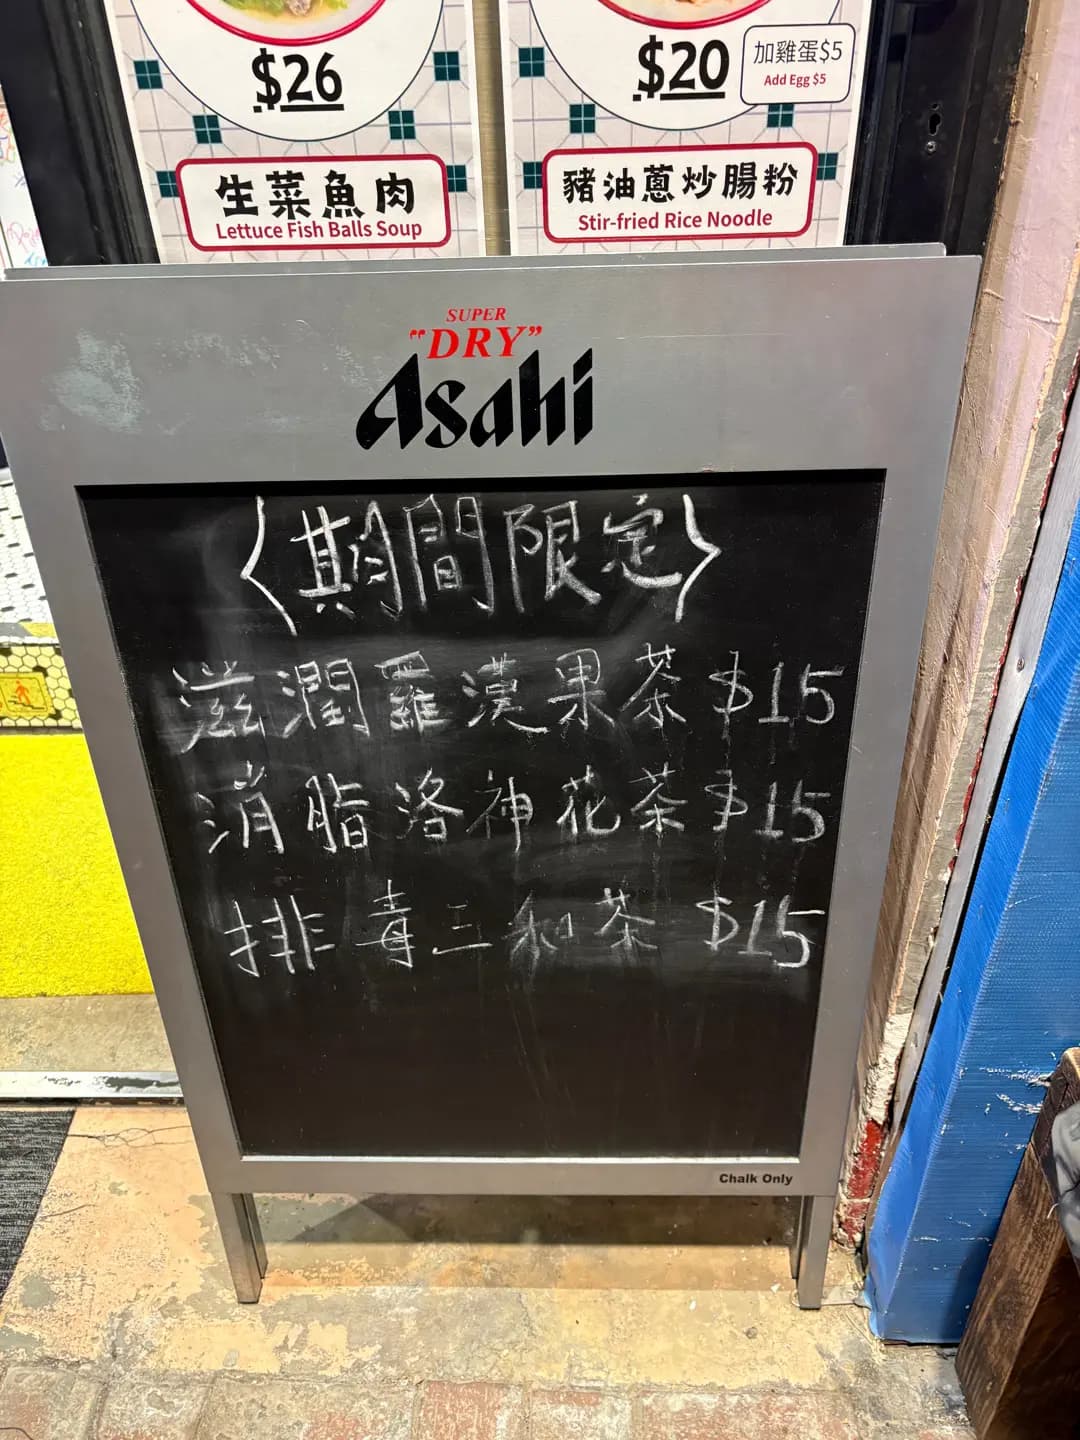 $26
$20
加雞蛋$5
Add Egg $5
生菜魚肉
Lettuce Fish Balls Soup
豬油蔥炒腸粉
Stir-fried Rice Noodle
SUPER
"DRY"
Asahi
〈期間限定〉
滋潤羅漢果茶 $15
消脂洛神花茶 $15
排毒三和茶 $15
Chalk Only